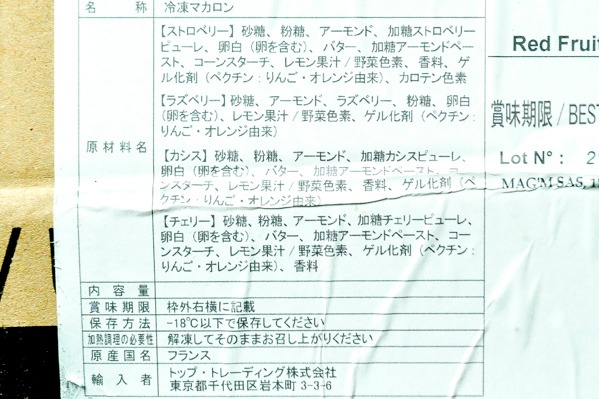 名称 冷凍マカロン
原材料名
【ストロベリー】砂糖、粉糖、アーモンド、加糖ストロベリー
ピューレ、卵白（卵を含む）、バター、加糖アーモンドペー
スト、コーンスターチ、レモン果汁/野菜色素、香料、ゲ
ル化剤（ペクチン：りんご・オレンジ由来）、カロテン色素
【ラズベリー】砂糖、アーモンド、ラズベリー、粉糖、卵白
（卵を含む）、レモン果汁/野菜色素、ゲル化剤（ペクチン：
りんご・オレンジ由来）
【カシス】砂糖、粉糖、アーモンド、加糖カシスピューレ、
卵白（卵を含む）、バター、加糖アーモンドペースト、コー
ンスターチ、レモン果汁/野菜色素、香料、ゲル化剤（ペ
クチン：りんご・オレンジ由来）
【チェリー】砂糖、粉糖、アーモンド、加糖チェリーピューレ、
卵白（卵を含む）、バター、加糖アーモンドペースト、コー
ンスターチ、レモン果汁/野菜色素、ゲル化剤（ペクチン：
りんご・オレンジ由来）、香料
内容量
賞味期限 枠外右横に記載
保存方法 -18℃以下で保存してください
加熱調理の必要性 解凍してそのままお召し上がりください
原産国名 フランス
輸入者 トップ・トレーディング株式会社
東京都千代田区岩本町 3-3-6
Red Fruit
賞味期限/BES
Lot N°: 2
MAG'M SAS,